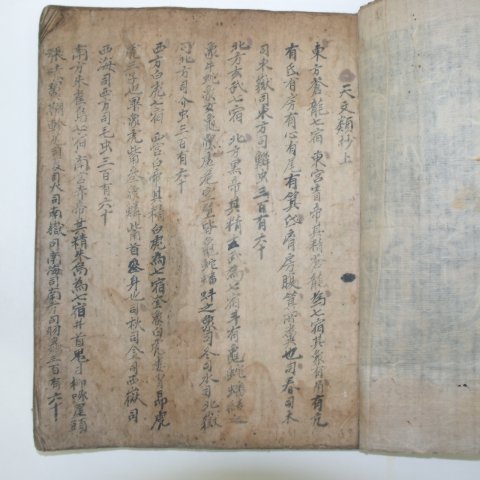 天文類抄上
東方蒼龍七宿 東宮青帝其精蒼龍為七宿其象有角有亢
有氐有房有心有尾有箕氐胸房腹箕所糞也司春司木
司東嶽司東方司鱗虫三百有六十
北方玄武七宿 北方黑帝其精玄武為七宿斗有龜蛇蟠結之
象牛蛇象女龜象虛危室壁皆龜蛇蟠虯之象司冬司水司北嶽
司北方司介虫三百有六十
西方白虎七宿 西宮白帝其精白虎為七宿奎象白虎婁胃昴虎
三子也畢象虎觜參象麟觜首參身也司秋司金司西嶽司
西海司西方司毛虫三百有六十
南方朱雀七宿 南宮赤帝其精朱鳥為七宿井首鬼目柳喙星頸
張嗉翼翮軫尾司夏司火司南嶽司南海司南方司羽虫三百有六十